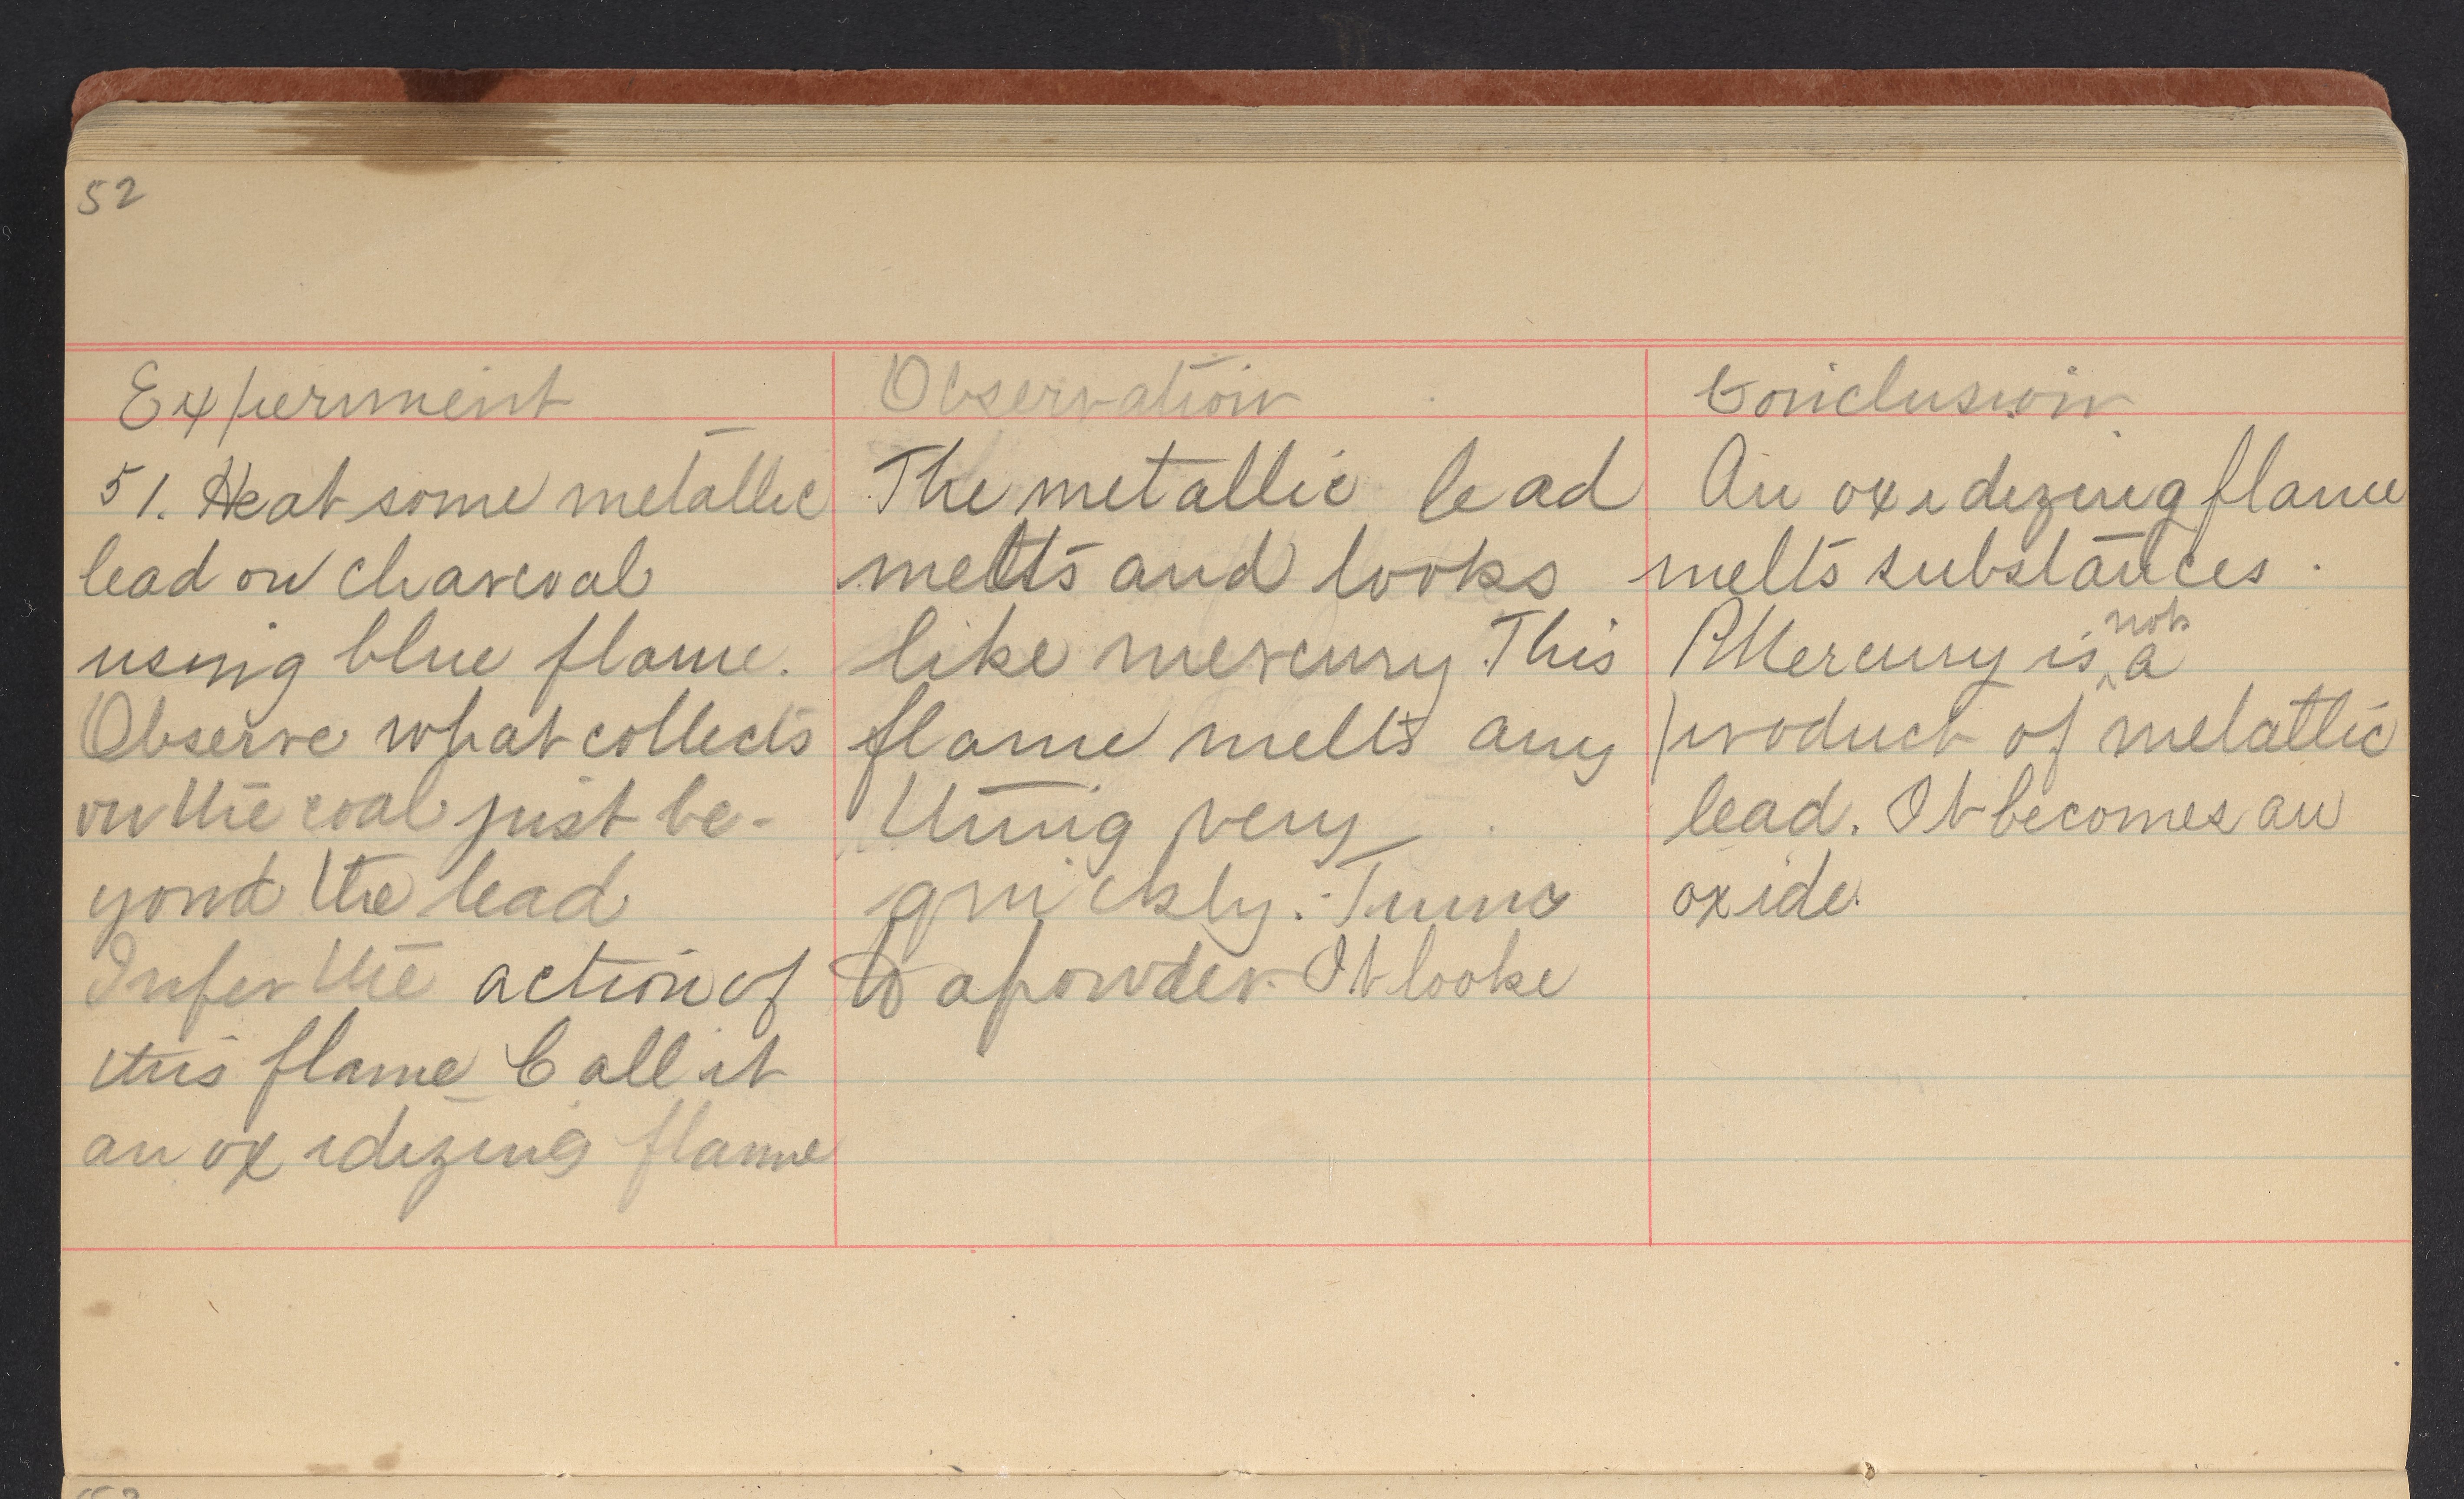 52
Experiment
51. Heat some metallic
lead on charcoal
using blue flame.
Observe what collects
on the coal just be-
yond the lead
Infer the action of
this flame Call it
an oxidizing flame
Observation
The metallic lead
melts and looks
like mercury This
flame melts any
thing very
quickly. Turns
to a powder. It looke
Conclusion
An oxidizing flame
melts substances.
Mercury is ^not a
product of metattic
lead. It becomes an
oxide.